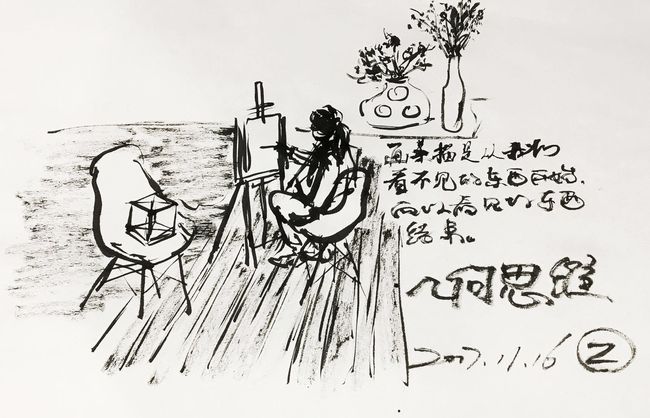 画素描是从我们
看不见的东西开始,
而以看见的东西
结束。
几何思维
2017.11.16 ②